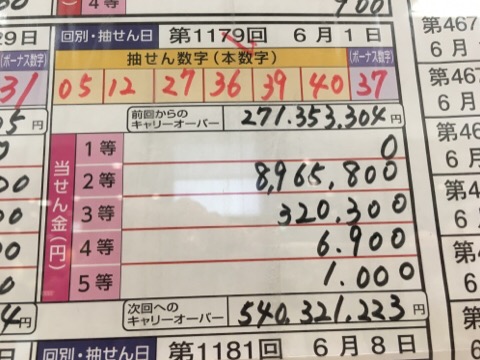 4等
900
29日
回別・抽せん日 第1179回 6月1日
(ボーナス数字)
抽せん数字(本数字)
(ボーナス数字)
31
05 12 27 36 39 40 37
前回からの
キャリーオーバー 271.353.304円
円
当せん金(円)
1等 0
2等 8,965,800
3等 320,300
4等 6.900
5等 1.000
次回への
キャリーオーバー 540,321,223円
円
回別・抽せん日 第1181回 6月8日
第467
6月
第467
6月
第46
6月
第4
6
第4
6
第4